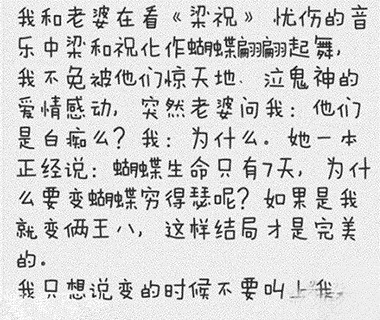 我和老婆在看《梁祝》忧伤的音
乐中梁和祝化作蝴蝶翩翩起舞,
我不免被他们惊天地、泣鬼神的
爱情感动, 突然老婆问我: 他们
是白痴么? 我: 为什么。她一本
正经说: 蝴蝶生命只有7天, 为什
么要变蝴蝶穷得瑟呢? 如果是我
就变俩王八, 这样结局才是完美
的。
我只想说变的时候不要叫上我